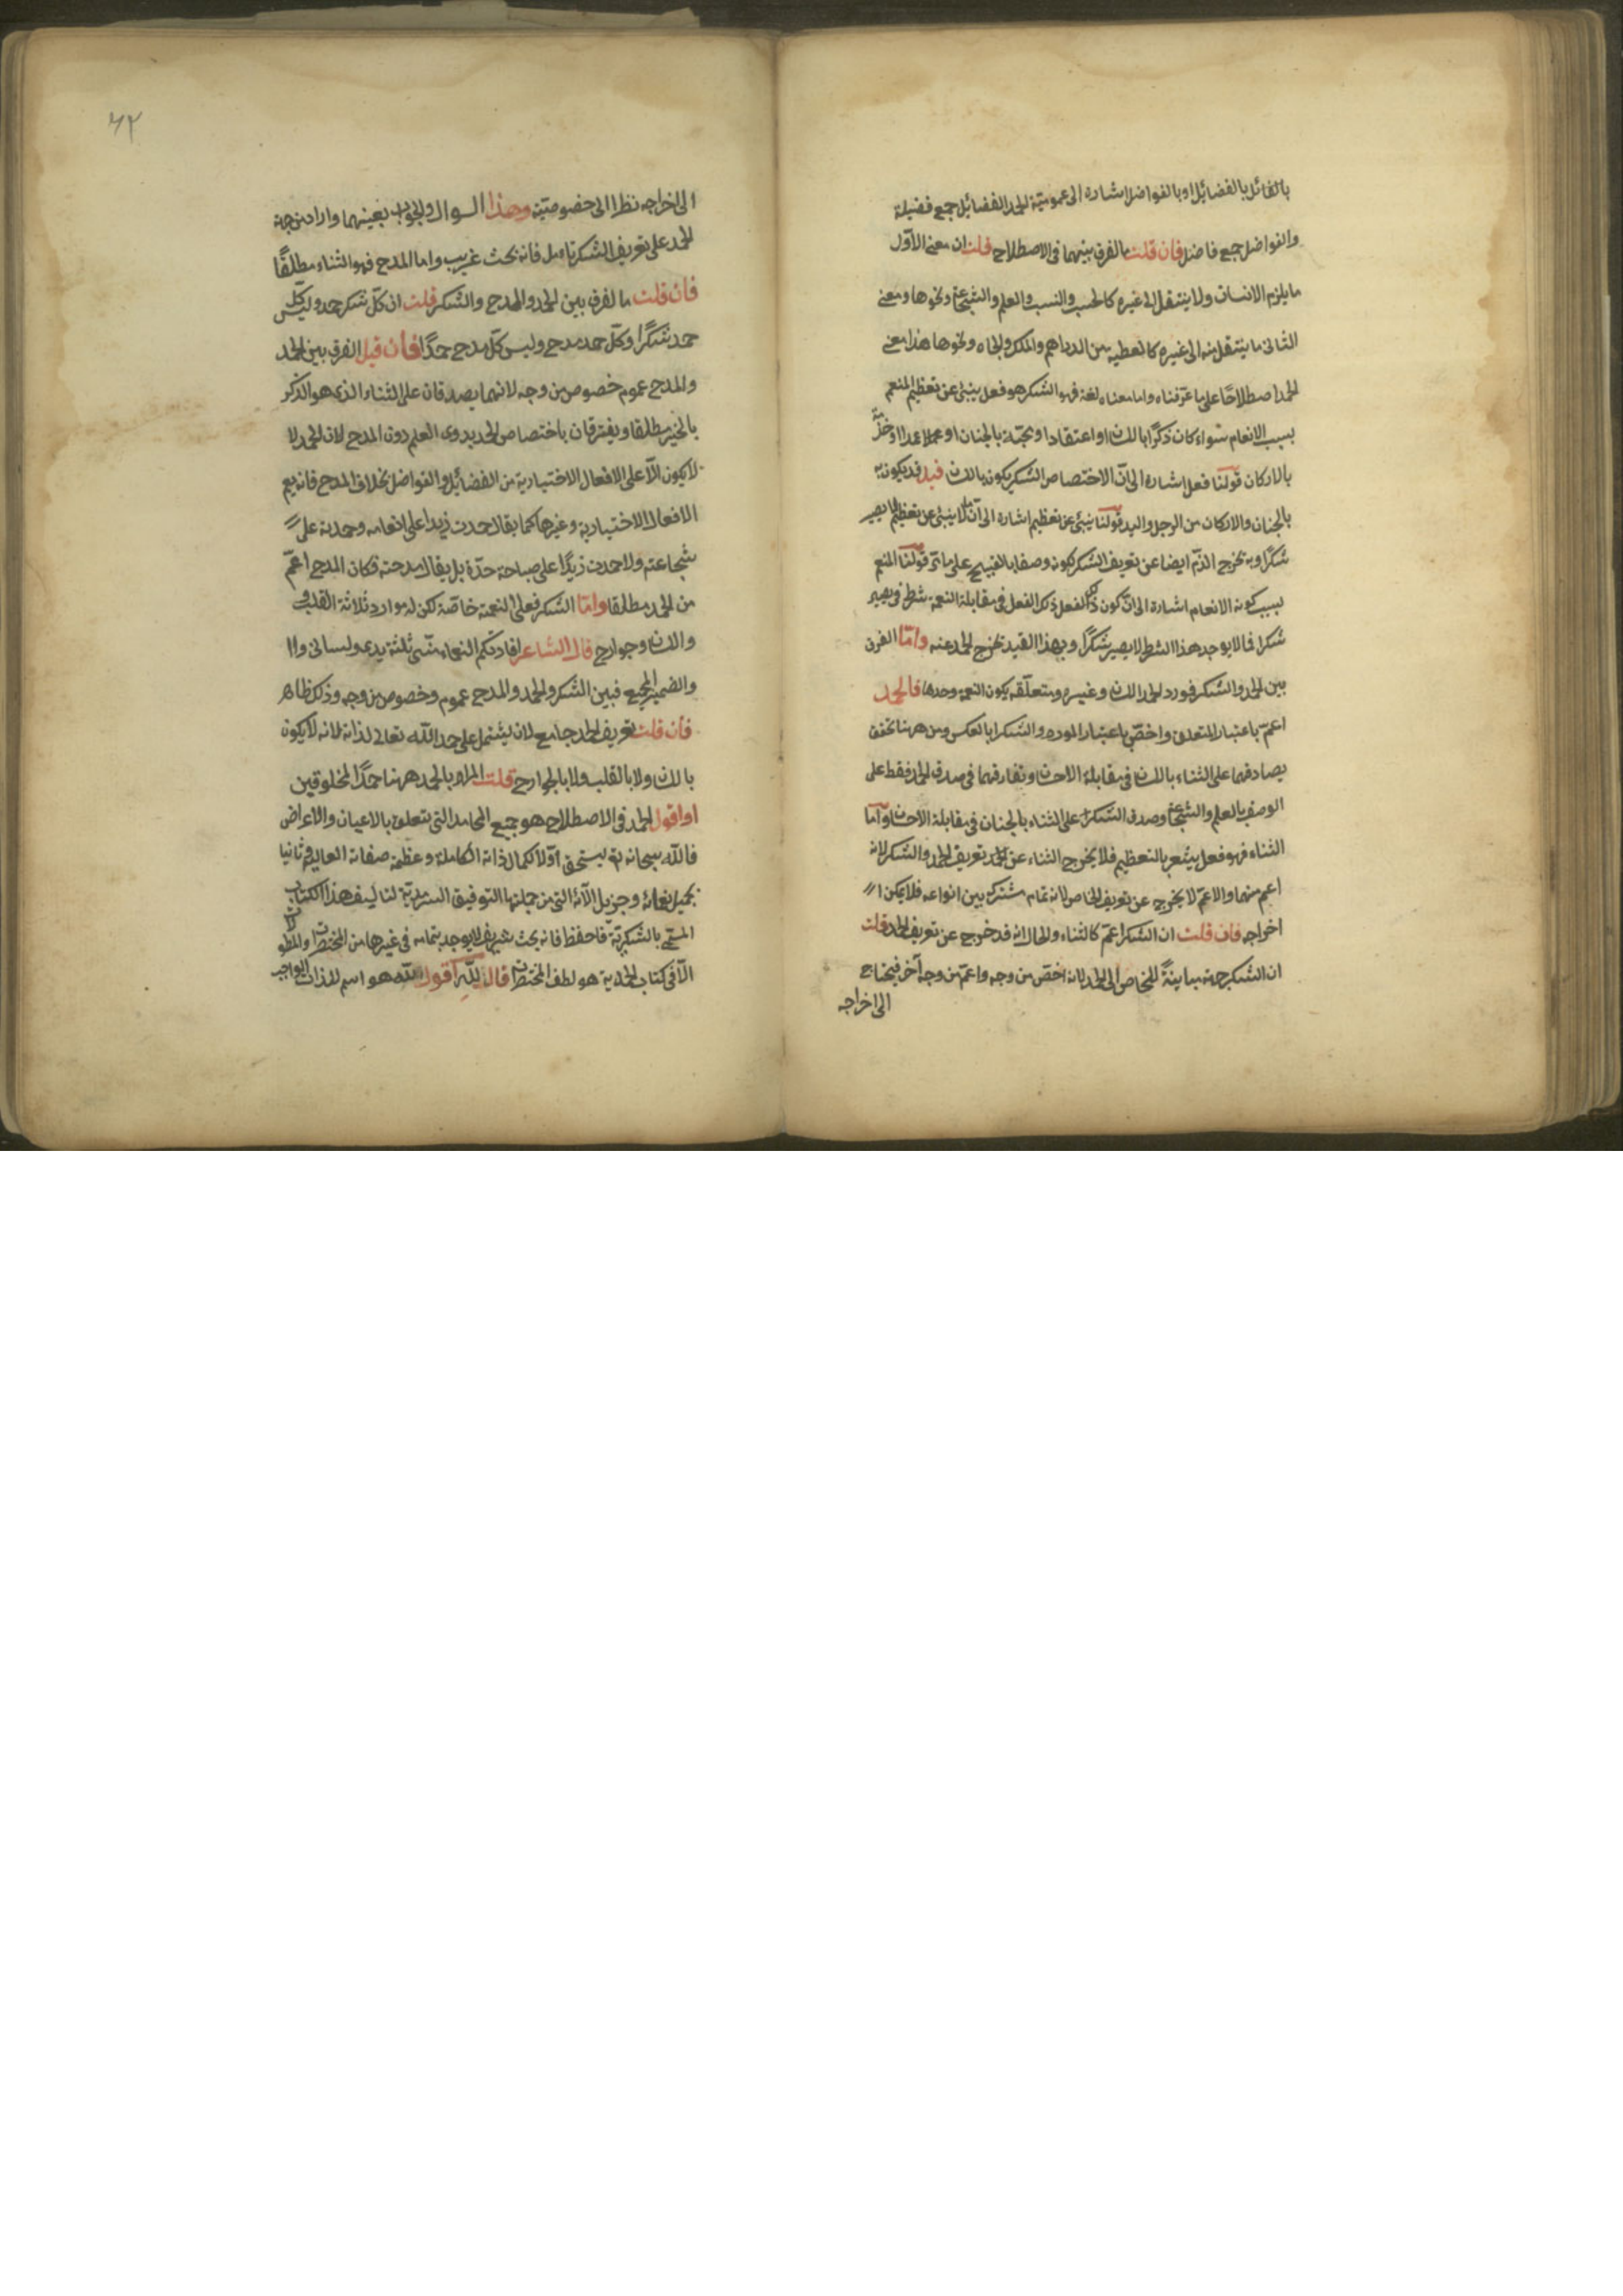 بالقائل بالفضائل او بالفواضل اشارة الى عمومية الحمد الفضائل جمع فضيلة
والفواضل جمع فاضل فان قلت ما الفرق بينهما فى الاصطلاح قلت ان معنى الاول
ما يلزم الانسان ولا ينتقل الى غيره كالحسب والنسب والعلم والشجاعة ونحوها ومعنى
الثانى ما ينتقل منه الى غيره كالعطية من الدراهم والملك والجاه ونحوها هذا معنى
الحمد اصطلاحًا على ما عرفناه واما معناه لغة فهو الشكر هو فعل ينبئ عن تعظيم المنعم
بسبب الانعام سواء كان ذكرًا باللسان او اعتقادا ومحبّة بالجنان او عملا او خدمة
بالاركان قولنا فعل اشارة الى انّ الاختصاص الشكر يكون باللسان قيل قد يكون به
بالجنان والاركان من الرجل واليد قولنا ينبئ عن تعظيم اشارة الى انّ ما لا ينبئ عن تعظيم لا يصير
شكرًا وبه يخرج الذم ايضا عن تعريف الشكر لكونه وصفا بالقبيح على ما مرّ قولنا المنعم
بسبب كونه الانعام اشارة الى انّ كون ذلك الفعل ذكر الفعل فى مقابلة النعمة شرط فى يصير
شكرا فما لا يوجد هذا الشرط لا يصير شكرًا وبهذا القيد يخرج الحمد عنه وامّا الفرق
بين الحمد والشكر فمورد الحمد اللسان وغيره ومتعلّقه يكون النعمة وحدها فالحمد
اعمّ باعتبار المتعلق واخصّ باعتبار المورد والشكر بالعكس ومن ههنا تحقق
تصادقهما على الثناء باللسان فى مقابلة الاحسان وتفارقهما فى صدق الحمد فقط على
الوصف بالعلم والشجاعة وصدق الشكر على الثناء بالجنان فى مقابلة الاحسان وامّا
الثناء فهو فعل يشعر بالتعظيم فلا يخرج الثناء عن الحمد تعريف الحمد والشكر لانه
اعم منهما والاعمّ لا يخرج عن تعريف الخاص لانه تمام مشترك بين انواعه فلا يمكن ا
اخراجه فان قلت ان الشكر اعمّ كالثناء والحال انه قد خرج عن تعريف الحمد قلت
ان الشكر جهة مباينة للخاص الى الحمد لانه اخصّ من وجه واعمّ من وجه آخر فيحتاج
الى اخراجه
٦٢
الى اخراجه نظرا الى خصوصيّته وهذا السوال والجواب بعينهما وارادمن جهة
الحمد على تعريف الشكر تامل فانه بحث غريب واما المدح فهو الثناء مطلقًا
فان قلت ما لفرق بين الحمد والمدح والشكر قلت ان كلّ شكر حمد وليس كل
حمد شكرًا وكلّ حمد مدح وليس كلّ مدح حمدًا فان قيل الفرق بين الحمد
والمدح عموم خصوص من وجه لانهما يصدقان على الثناء الذى هو الذكر
بالخير مطلقا ويفترقان باختصاص الحمد بذوى العلم دون المدح لان الحمد لا
لا يكون الّا على الافعال الاختيارية من الفضائل والفواضل بخلاف المدح فانه يعم
الافعال الاختيارية وغيرها كما يقال حمدت زيدا على انعامه وحمدته على
شجاعته ولا حمدت زيدًا على صباحة خدّه بل يقال مدحته فكان المدح اعمّ
من الحمد مطلقا وامّا الشكر فعلى النعمة خاصّة لكن له موارد ثلاثة القلب و
واللسان وجوارح قال الشاعر افادتكم النعماء منّى ثلثة يدى ولسانى واا
والضمير المحجب فبين الشكر والحمد والمدح عموم وخصوص من وجه وذلك ظاهر
فان قلت تعريف الحمد جامع لان يشتمل على حمد اللّه تعالى لذاته لانه لا يكون
باللسان ولا بالقلب ولا بالجوارح قلت المراد بالحمد ههنا حمدًا لمخلوقين
او اقول الحمد فى الاصطلاح هو جميع المحامد التى يتعلق بالاعيان والاعراض
فاللّه سبحانه تع يستحق اوّلا كمال ذاته الكاملة وعظمة صفاته العالية وثانيا
بجميل نعمائه وجزيل آلائه التى من جملتها التوفيق السرمديّة لتاليف هذا الكتاب
المسمّى بالشكريّة فاحفظ فانه بحث شريف لا يوجد بتمامه فى غيرها من المختصرات والمطولات
الّا فى كتاب الحمدية هو لطف المختصرات قال للّه اقول اللّه هو اسم للذات الواجب